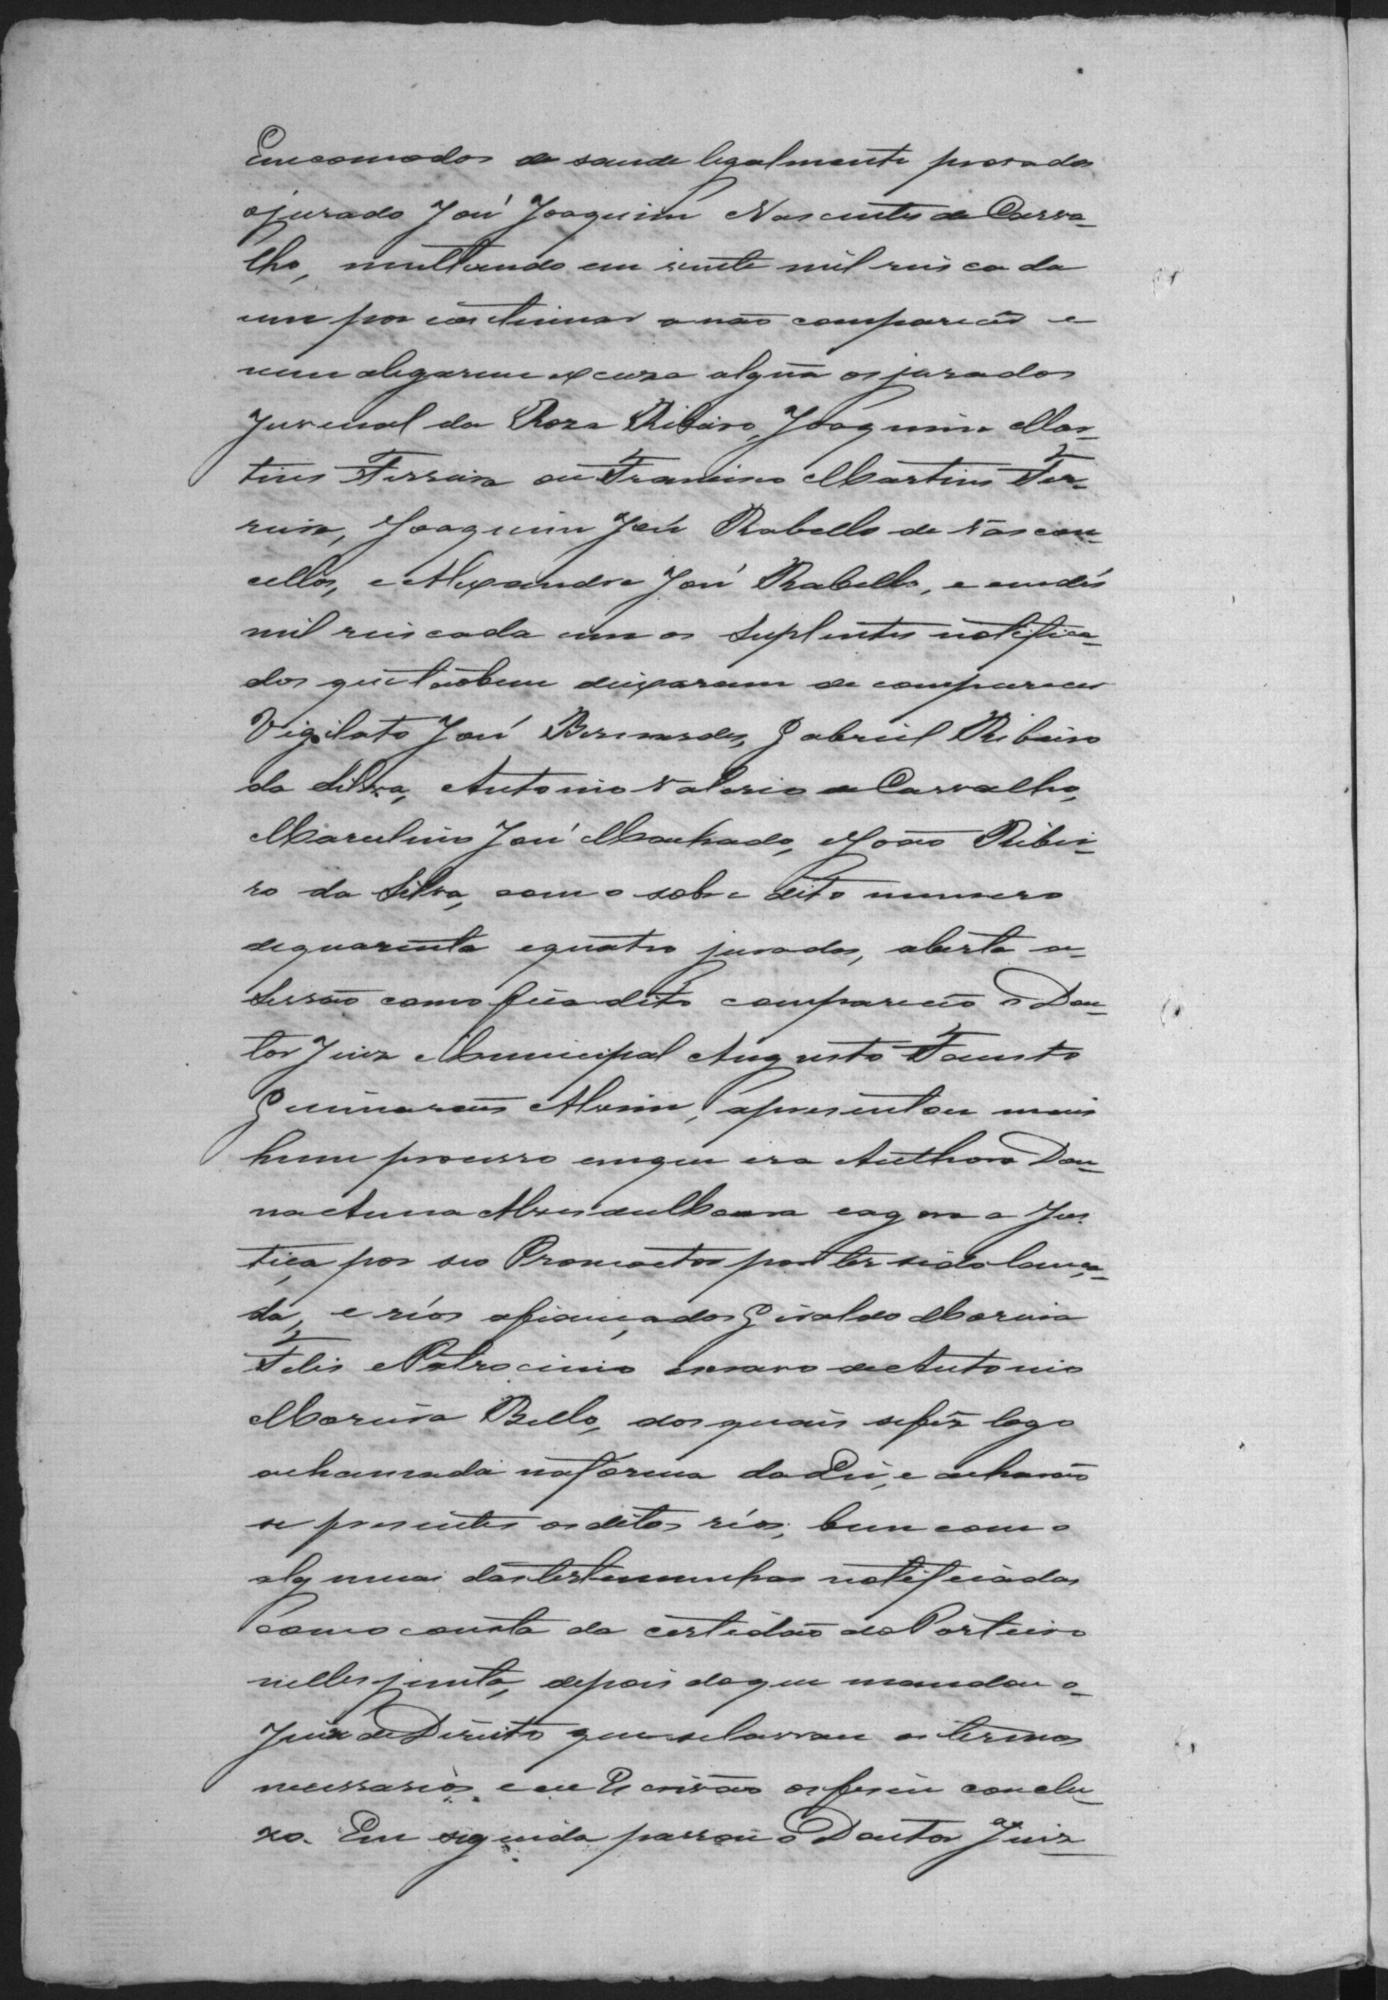 Emcomodos de saude legalmente provados
o jurado José Joaquim Nascentes de Carva-
lho, multando em vinte mil reis cada
um por continuar a não comparecer e
nem alegarem excuza algũa os jurados
Juvenal da Roza Ribeiro, Joaquim Mar-
tins Ferreira ou Francisco Martins Fer-
reira, Joaquim José Rabello de Vascon-
cellos, e Alexandre José Rabello, e em dés
mil reis cada um os Suplentes notifica-
dos que taõbem deixaram de comparecer
Vigilato José Bernardes, Gabriel Ribeiro
da Silva, Antonio Valerio de Carvalho,
Marculino José Machado, e João Ribei-
ro da Silva, com o sobre dito numero
de quarenta e quatro jurados, aberta a
Sessão como fica dito compareceo o Dou-
tor Juiz Municipal Augusto Fausto
Guimarães Alvim, apresentou mais
hum processo em que era Authora Don-
na Anna Alves de Moura e agora a Jus
tiça por seo Promoctor por ter sido lança-
da, e réos afiançados Giraldo Moreira
Felis e Patrocinio escravo de Antonio
Moreira Bello, dos quais se fez logo
a chamada na forma da Lei, e acharão
se presentes os ditos réos, bem como
algumas das testemunhas notificadas
como consta da certidão do Porteiro
nelles junta, depois do que mandou o
Juiz de Direito que se lavrem os termos
necessarios, e eu Escrivão os fis em conclu-
zo. Em seguida passou o Doutor Juiz